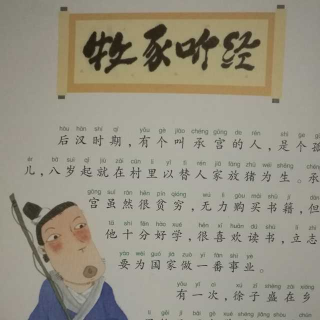 牧豕听经
hòu hàn shí qī yǒu gè jiào chéng gōng de rén shì gè gū
后汉时期，有个叫承宫的人，是个孤
ér bā suì qǐ jiù zài cūn lǐ yǐ tì rén jiā fàng zhū wéi shēng chéng
儿，八岁起就在村里以替人家放猪为生。承
gōng suī rán hěn pín qióng wú lì gòu mǎi shū jí dàn
宫虽然很贫穷，无力购买书籍，但
tā shí fēn hào xué hěn xǐ huān dú shū lì zhì
他十分好学，很喜欢读书，立志
yào wèi guó jiā zuò yī fān shì yè
要为国家做一番事业。
yǒu yī cì xú zǐ shèng zài xiāng
有一次，徐子盛在乡